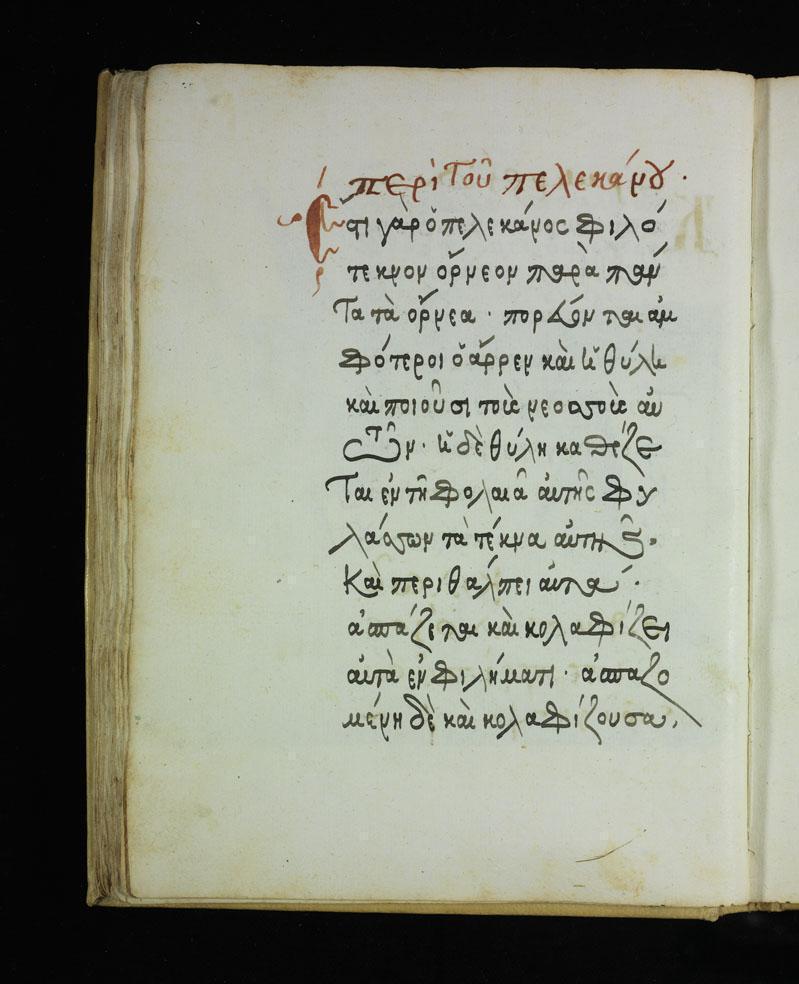 περὶ τοῦ πελεκάνου.
Ἔστι γὰρ ὁ πελεκάνος φιλό
τεκνον ὄρνεον παρὰ πάν
τα τὰ ὄρνεα · πορδόν ται ἀμ
φότεροι ὁ ἄρρεν καὶ ἡ θύλη
καὶ ποιοῦσι τοὺς νεοσσοὺς αὐ
τῶν · ἡ δὲ θύλη καθέζε
ται ἐν τῇ φολαιᾶ αὐτῆς φυ
λάσσων τὰ τέκνα αὐτῆς.
Καὶ περιθάλπει αὐτά ·
ἀσπάζεται καὶ κολαφίζει
αὐτὰ ἐν φιλήματι · ἀσπαζο
μένη δὲ καὶ κολαφίζουσα,